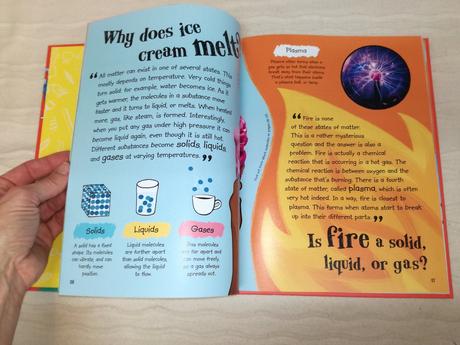 Why does ice
cream melt?
“All matter can exist in one of several states. This
mostly depends on temperature. Very cold things
turn solid, for example, water becomes ice. As it
gets warmer, the molecules in a substance move
faster and it turns to liquid, or melts. When heated
more, gas, like steam, is formed. Interestingly,
when you put any gas under high pressure it can
become liquid again, even though it is still hot.
Different substances become solids, liquids,
and gases at varying temperatures.”
Solids
A solid has a fixed
shape. Its molecules
can vibrate, and can
hardly move
position.
Liquids
Liquid molecules
are further apart
than solid molecules,
allowing the liquid
to flow.
Gases
Gas molecules
are far apart and
can move freely,
so a gas always
spreads out.
Plasma
Plasma often forms when a
gas gets so hot that electrons
break away from their atoms.
That's what happens inside
a plasma ball, or lamp.
“Fire is none
of these states of matter.
This is a rather mysterious
question and the answer is also a
problem. Fire is actually a chemical
reaction that is occurring in a hot gas. The
chemical reaction is between oxygen and the
substance that's burning. There is a fourth
state of matter, called plasma, which is often
very hot indeed. In a way, fire is closest to
plasma. This forms when atoms start to break
up into their different parts.”
Is fire a solid,
liquid, or gas?